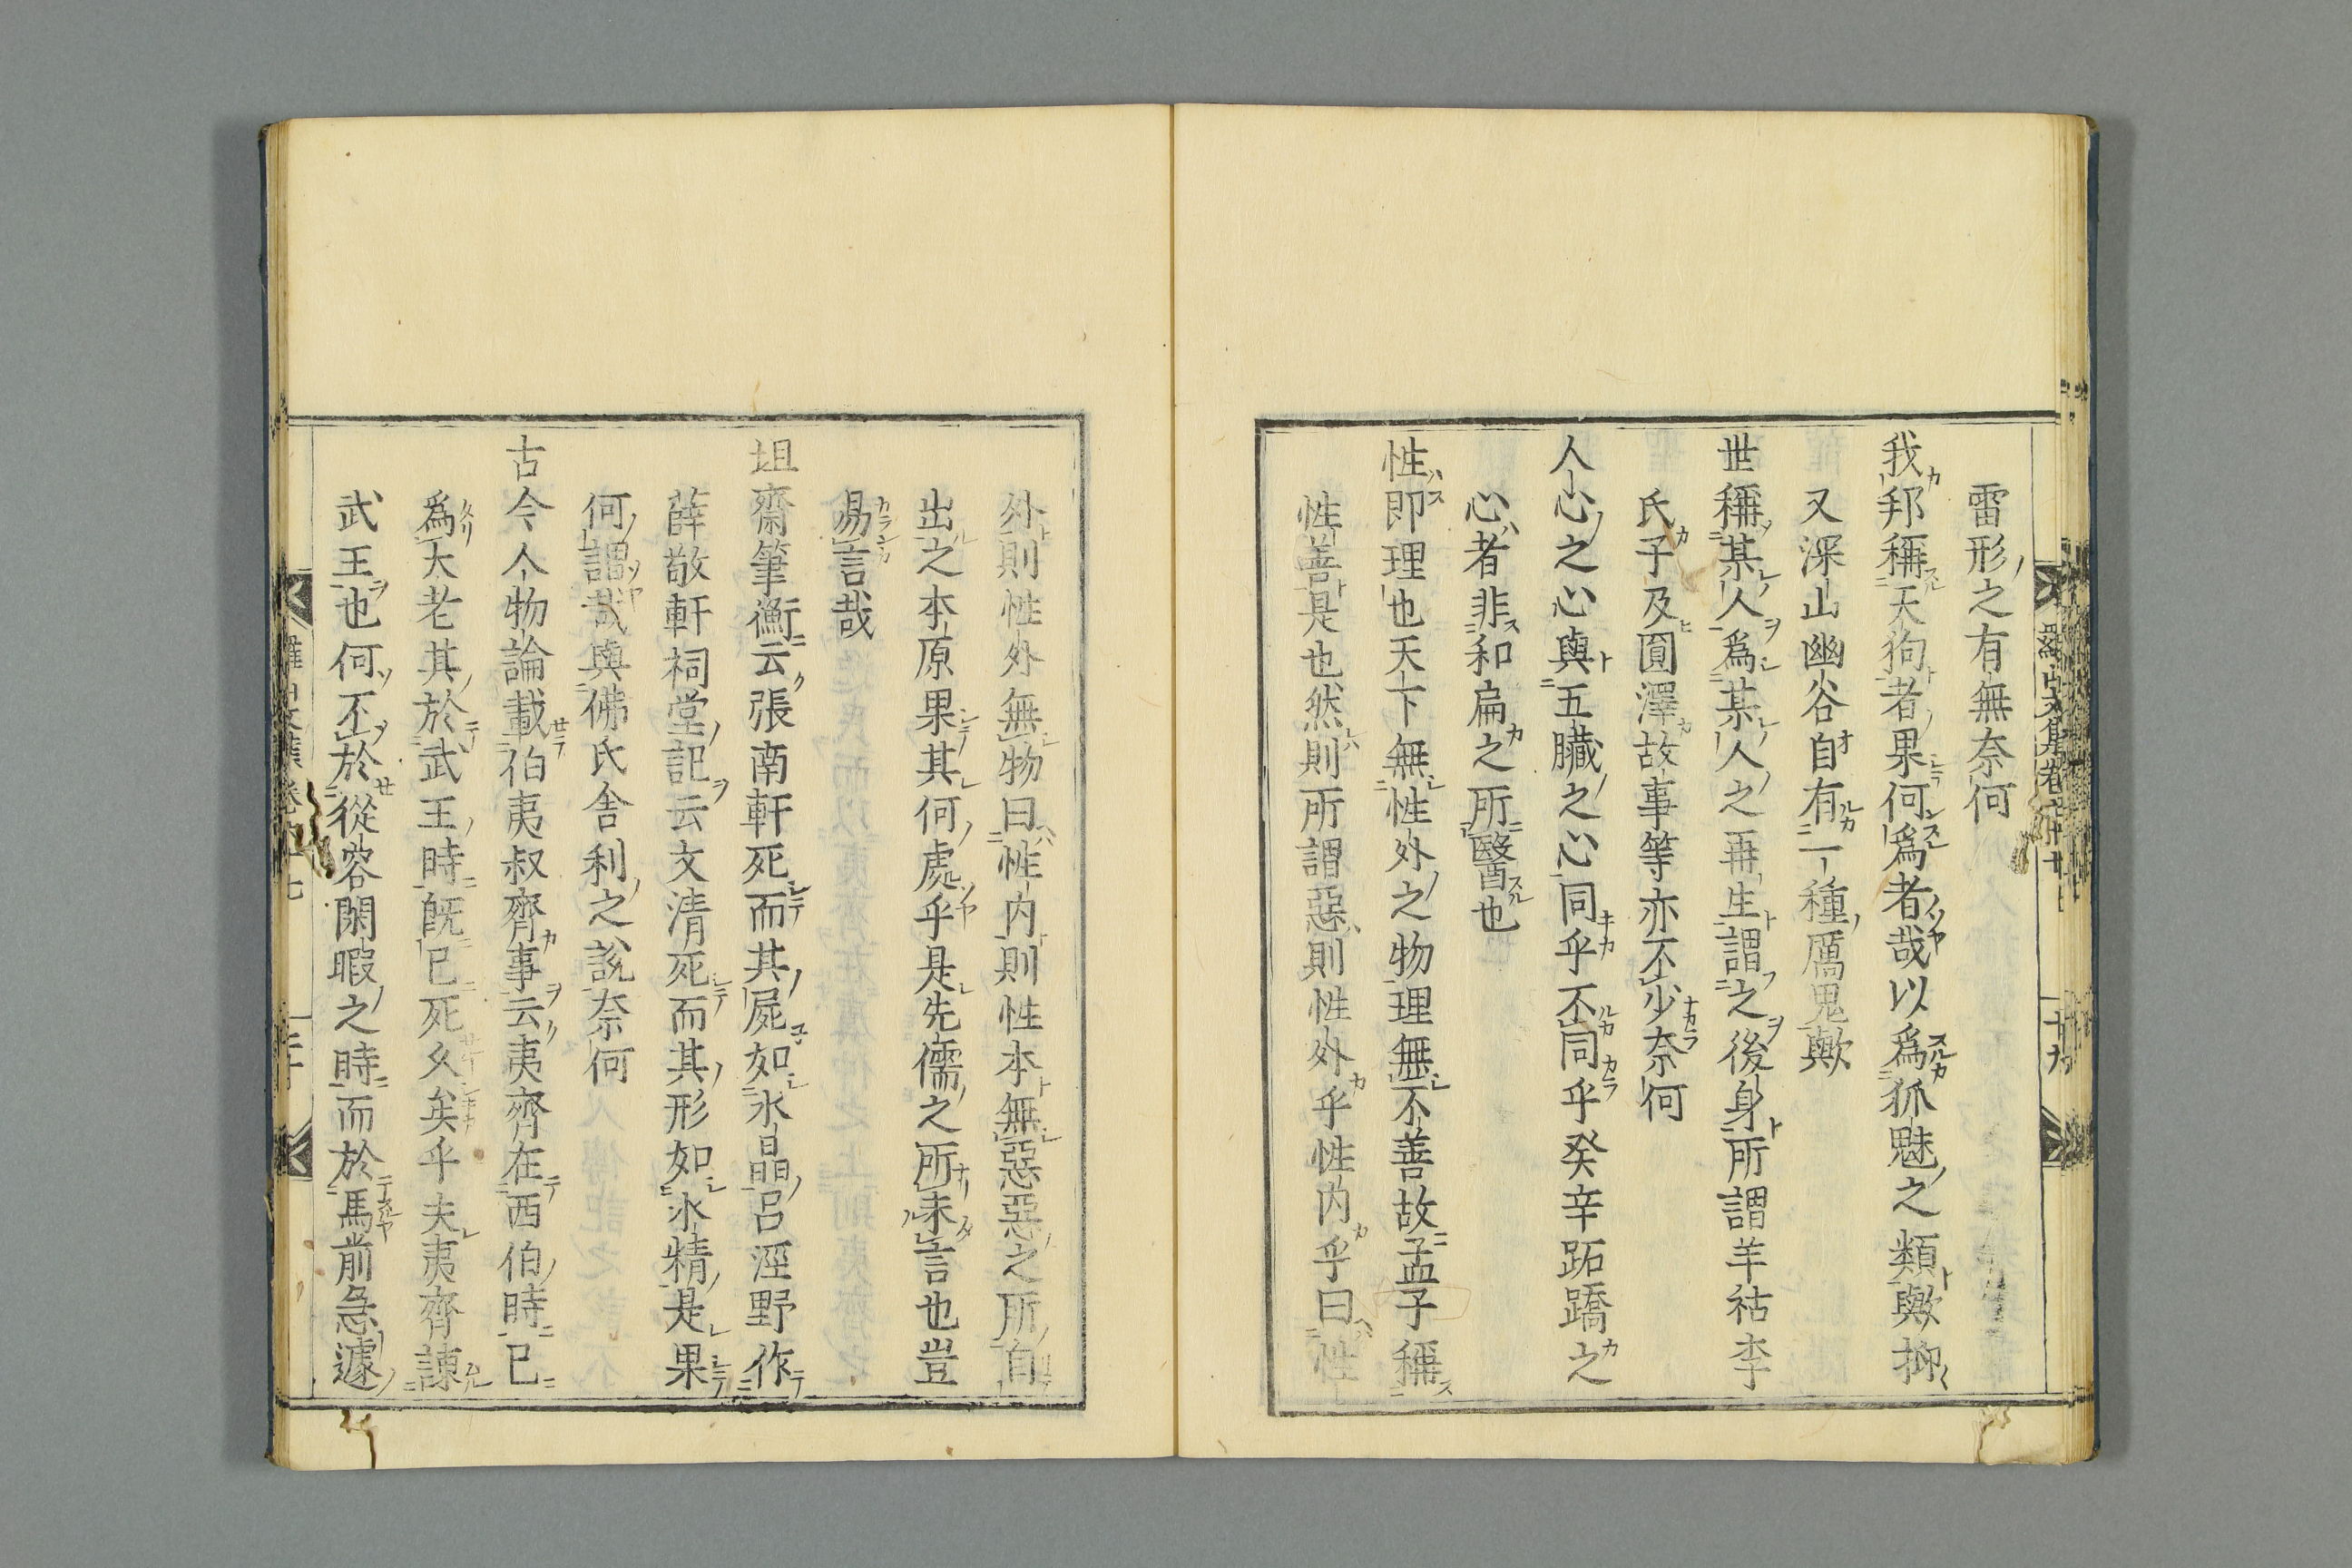 雷形之有無奈何
我邦稱天狗者果何爲者哉以爲狐魅之類歟抑
又深山幽谷自有一種厲鬼歟
世稱某人爲某人之再生謂之後身所謂羊祜李
氏子及圓澤故事等亦不少奈何
人心之心與五臟之心同乎不同乎癸辛跖蹻之
心者非和扁之所醫也
性即理也天下無性外之物理無不善故孟子稱
性善是也然則所謂惡則性外乎性内乎曰性
外則性外無物曰性内則性本無惡惡之所自
出之本原果其何處乎是先儒之所未言也豈
易言哉
坦齋筆衡云張南軒死而其屍如水晶呂涇野作
薛敬軒祠堂記云文清死而其形如水精是果
何謂哉與佛氏舎利之説奈何
古今人物論載伯夷叔齊事云夷齊在西伯時已
爲大老其於武王時既已死久矣乎夫夷齊諫
武王也何不於從容閑暇之時而於馬前急遽